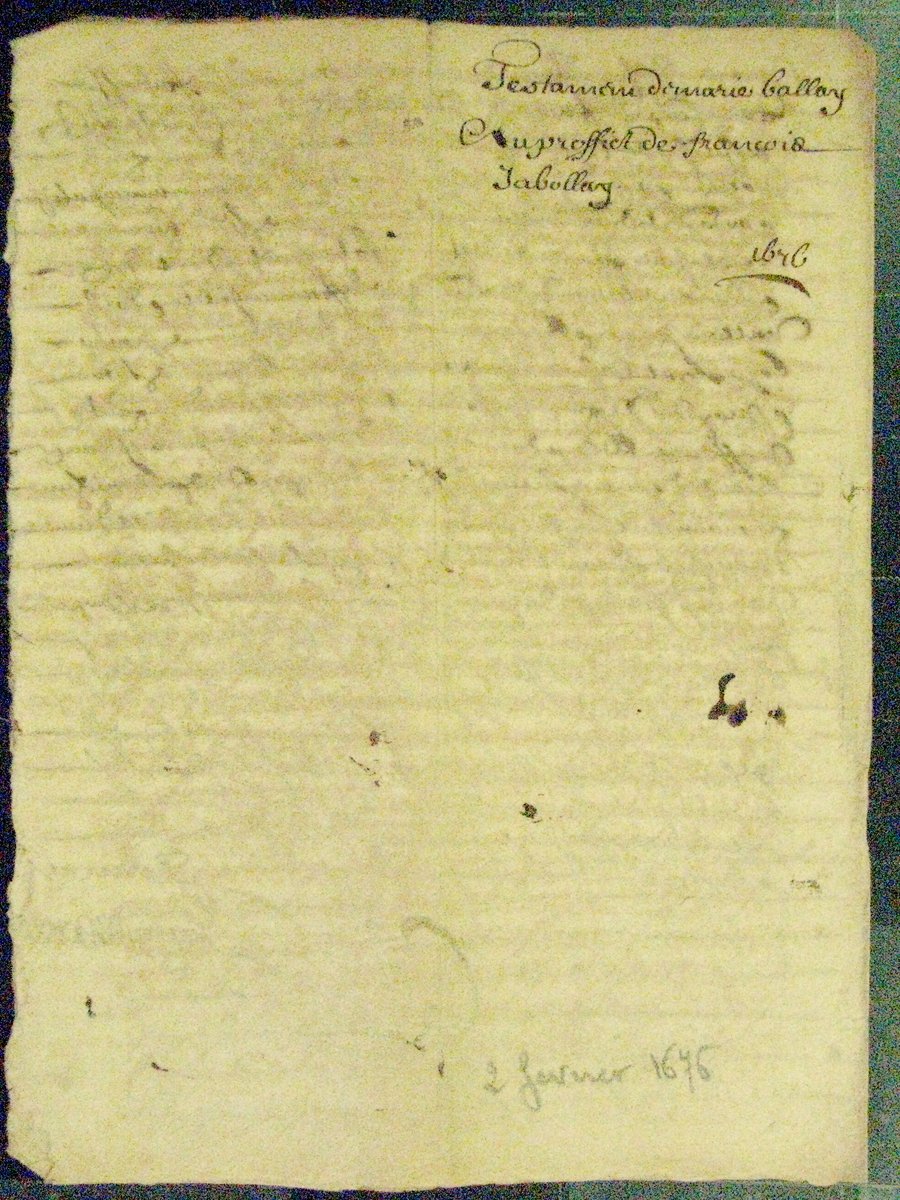 Testamen de marie ballay
Au proffict de francois
Jabollay
1676
2 fevrier 1676